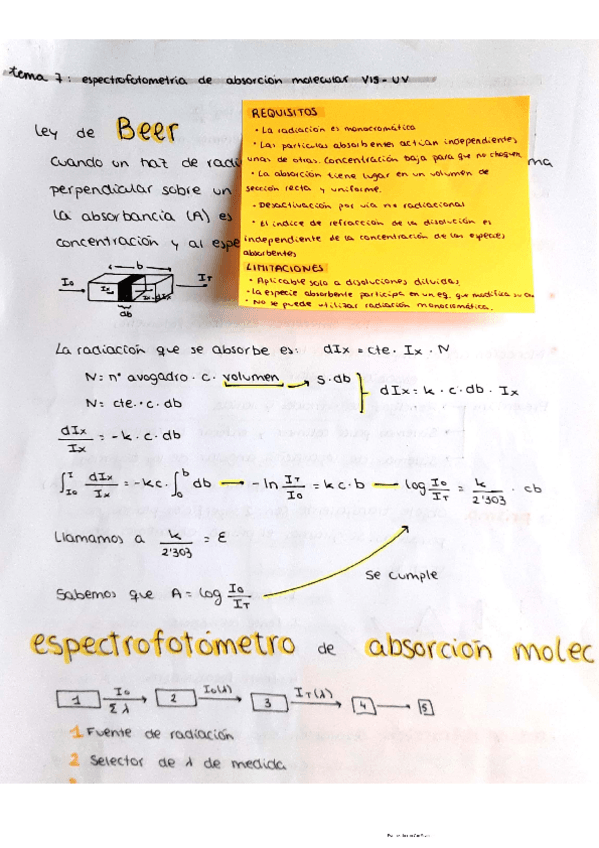 tema 7: espectrofotometría de absorción molecular VIS-UV
Ley de Beer
Cuando un haz de radi
perpendicular sobre un
la absorbancia (A) es
concentración y al espe
ma
REQUISITOS
• La radiación es monocromática
• Las partículas absorbentes actúan independientes
unas de otras. Concentración baja para que no choquen
• La absorción tiene lugar en un volumen de
sección recta y uniforme.
• Desactivación por vía no radiacional
• El índice de refracción de la disolución es
independiente de la concentración de las especies
absorbentes
LIMITACIONES
• Aplicable solo a disoluciones diluidas
• La especie absorbente participa en un eq. que modifica su
• No se puede utilizar radiación monocromática.
b
I0
IT
Ix
Ix-dIx
db
La radiación que se absorbe es: dIx = cte. Ix · N
N = nº avogadro · c · volumen → S·db
N = cte. · c · db
dIx = k · c · db · Ix
dIx/Ix = -k · c · db
∫I0^I dIx/Ix = -kc · ∫0^b db → -ln IT/I0 = k c · b → log I0/IT = k/2'303 · cb
Llamamos a k/2'303 = ε
se cumple
Sabemos que A = log I0/IT
espectrofotómetro de absorción molec
1 I0 Σλ → 2 I0(λ) → 3 IT(λ) → 4 → 5
1 Fuente de radiación
2 Selector de λ de medida